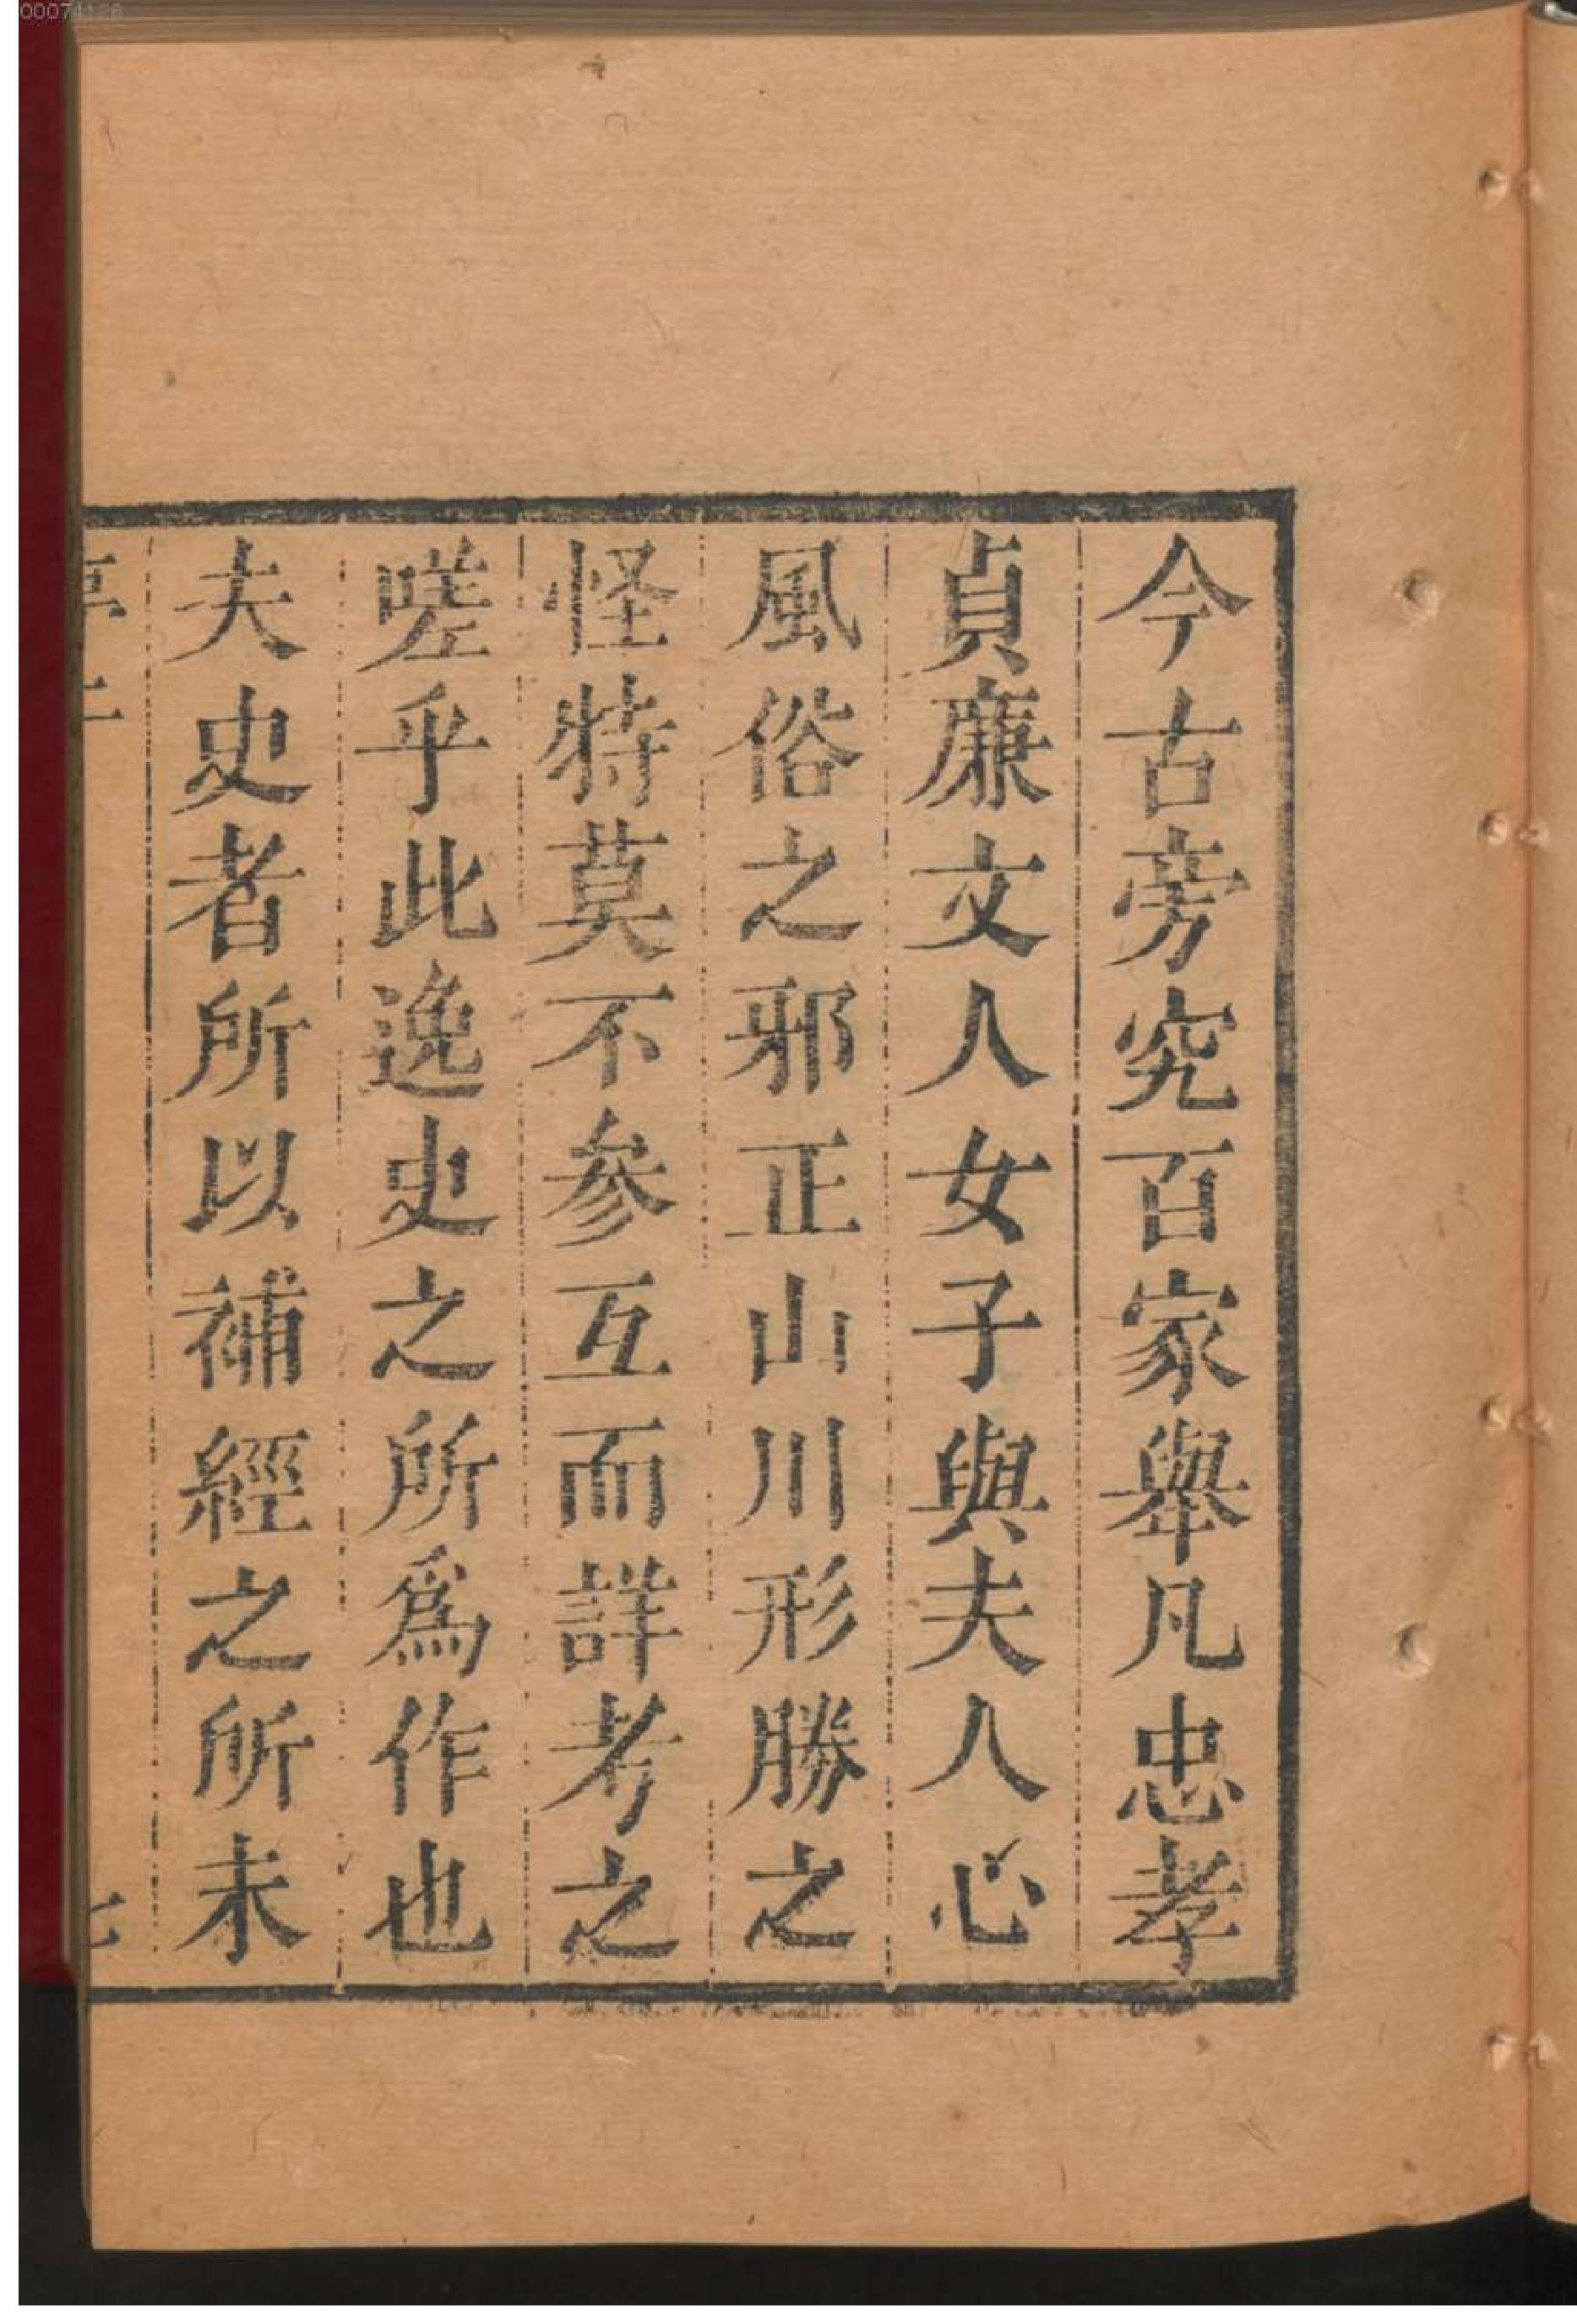 00074126
今古旁究百家舉凡忠孝
貞廉文人女子與夫人心
風俗之邪正山川形勝之
怪特莫不參互而詳考之
嗟乎此逸史之所爲作也
夫史者所以補經之所未